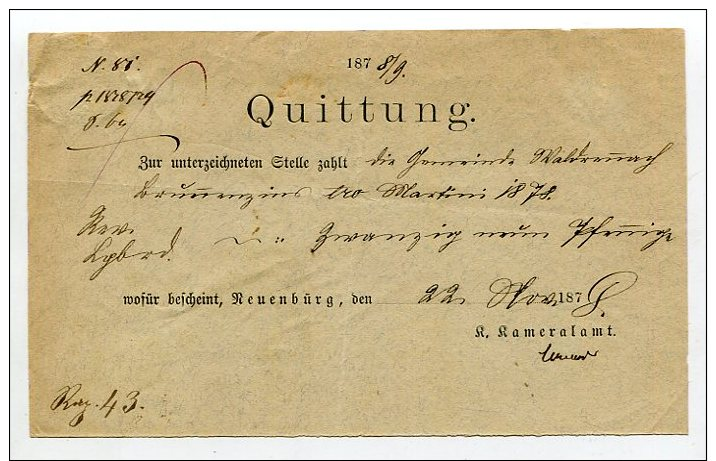 N. 85.
187 8/9.
p 1878/79
Quittung.
Zur unterzeichneten Stelle zahlt die Gemeinde Waldrennach
Brunnenzins pro Martini 1878.
Zwanzig neun Pfennige
wofür bescheint, Neuenbürg, den 22. Nov. 1878.
K. Kameralamt.
Rap. 43.